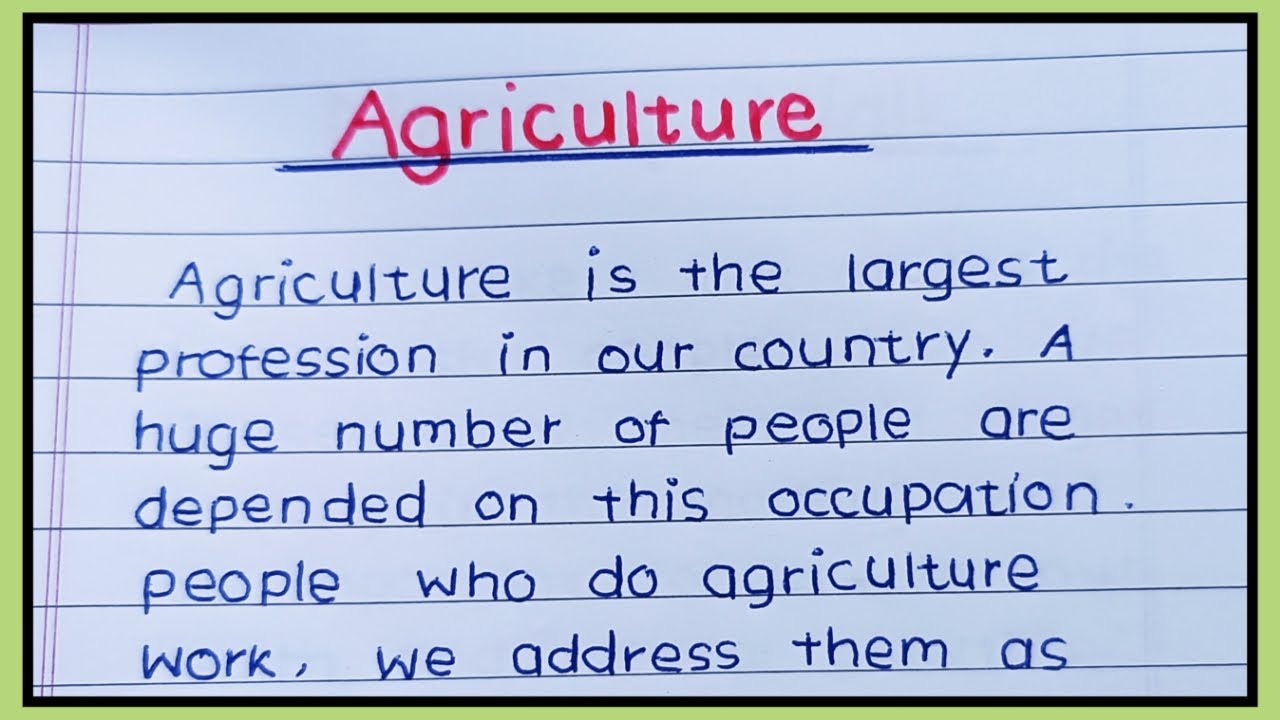 Agriculture
Agriculture is the largest
profession in our country. A
huge number of people are
depended on this occupation.
people who do agriculture
work, we address them as